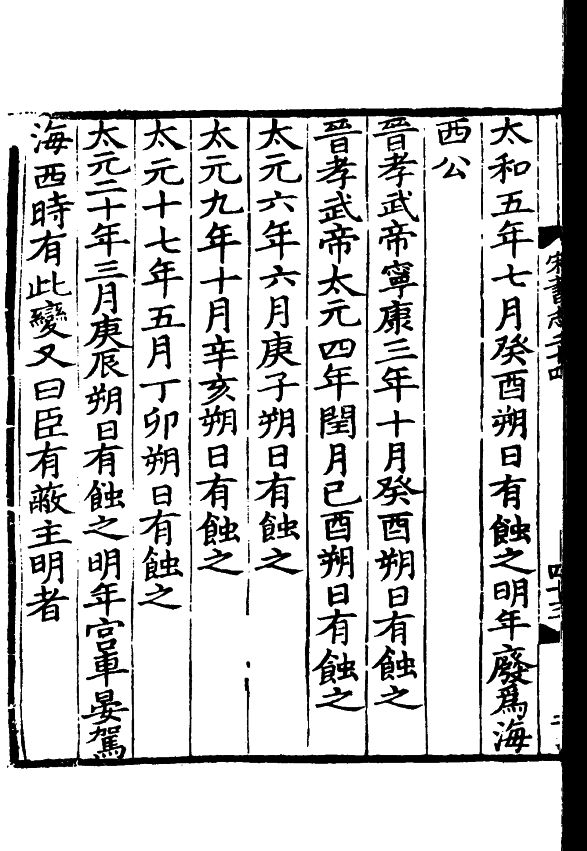 宋書志二十四
太和五年七月癸酉朔日有蝕之明年廢爲海
西公
晉孝武帝寧康三年十月癸酉朔日有蝕之
晉孝武帝太元四年閏月己酉朔日有蝕之
太元六年六月庚子朔日有蝕之
太元九年十月辛亥朔日有蝕之
太元十七年五月丁卯朔日有蝕之
太元二十年三月庚辰朔日有蝕之明年宫車晏駕
海西時有此變又曰臣有蔽主明者